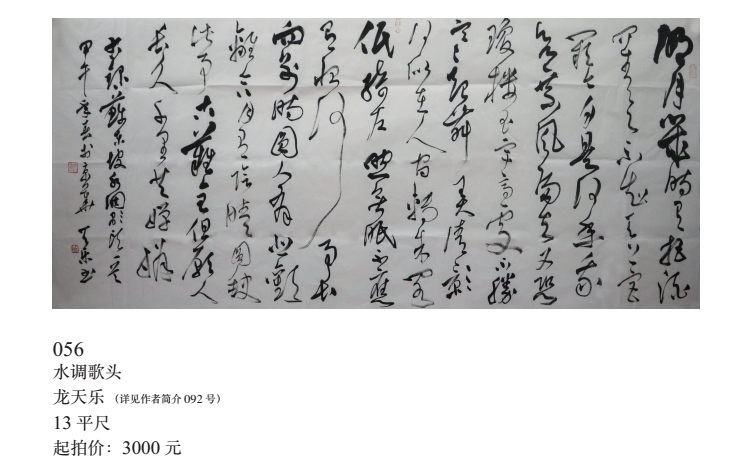 明月几时有把酒
问青天不知天上宫
阙今夕是何年我
欲乘风归去又恐
琼楼玉宇高处不胜
寒起舞弄清影
何似在人间转朱阁
低绮户照无眠不应
有恨何事长
向别时圆人有悲欢
离合月有阴晴圆缺
此事古难全但愿人
长久千里共婵娟
苏东坡水调歌头
甲午 天乐书
056
水调歌头
龙天乐（详见作者简介 092 号）
13 平尺
起拍价：3000 元